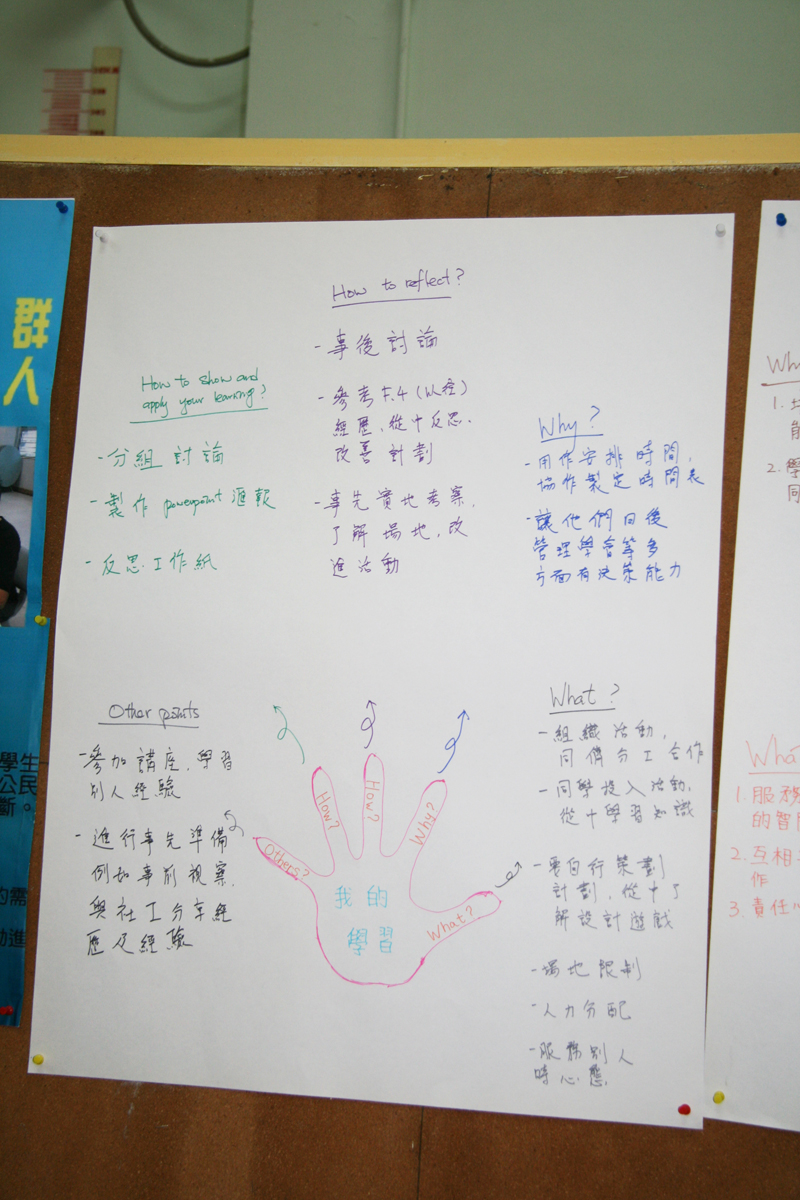 群
人
學生一
公民
斷。
的需
動進
How to reflect?
- 事後討論
- 參考F.4(以往)
經歷,從中反思,
改善計劃
- 事先實地考察,
了解場地,改
進活動
How to show and
apply your learning?
- 分組討論
- 製作 powerpoint 滙報
- 反思工作紙
Why?
- 用作安排時間,
協作製定時間表
- 讓他們日後
管理學會等多
方面有決策能力
Other points
- 參加講座,學習
別人經驗
- 進行事先準備
例如事前視察,
與社工分享經
歷及經驗
What?
- 組織活動,
同儕分工合作
- 同學投入活動,
從中學習知識
- 要自行策劃
計劃,從中了
解設計遊戲
- 場地限制
- 人力分配
- 服務別人
時心態
Others?
How?
How?
Why?
What?
我的
學習
1.
2. 學
同
1. 服務
的智
2. 互相
作
3. 責任心